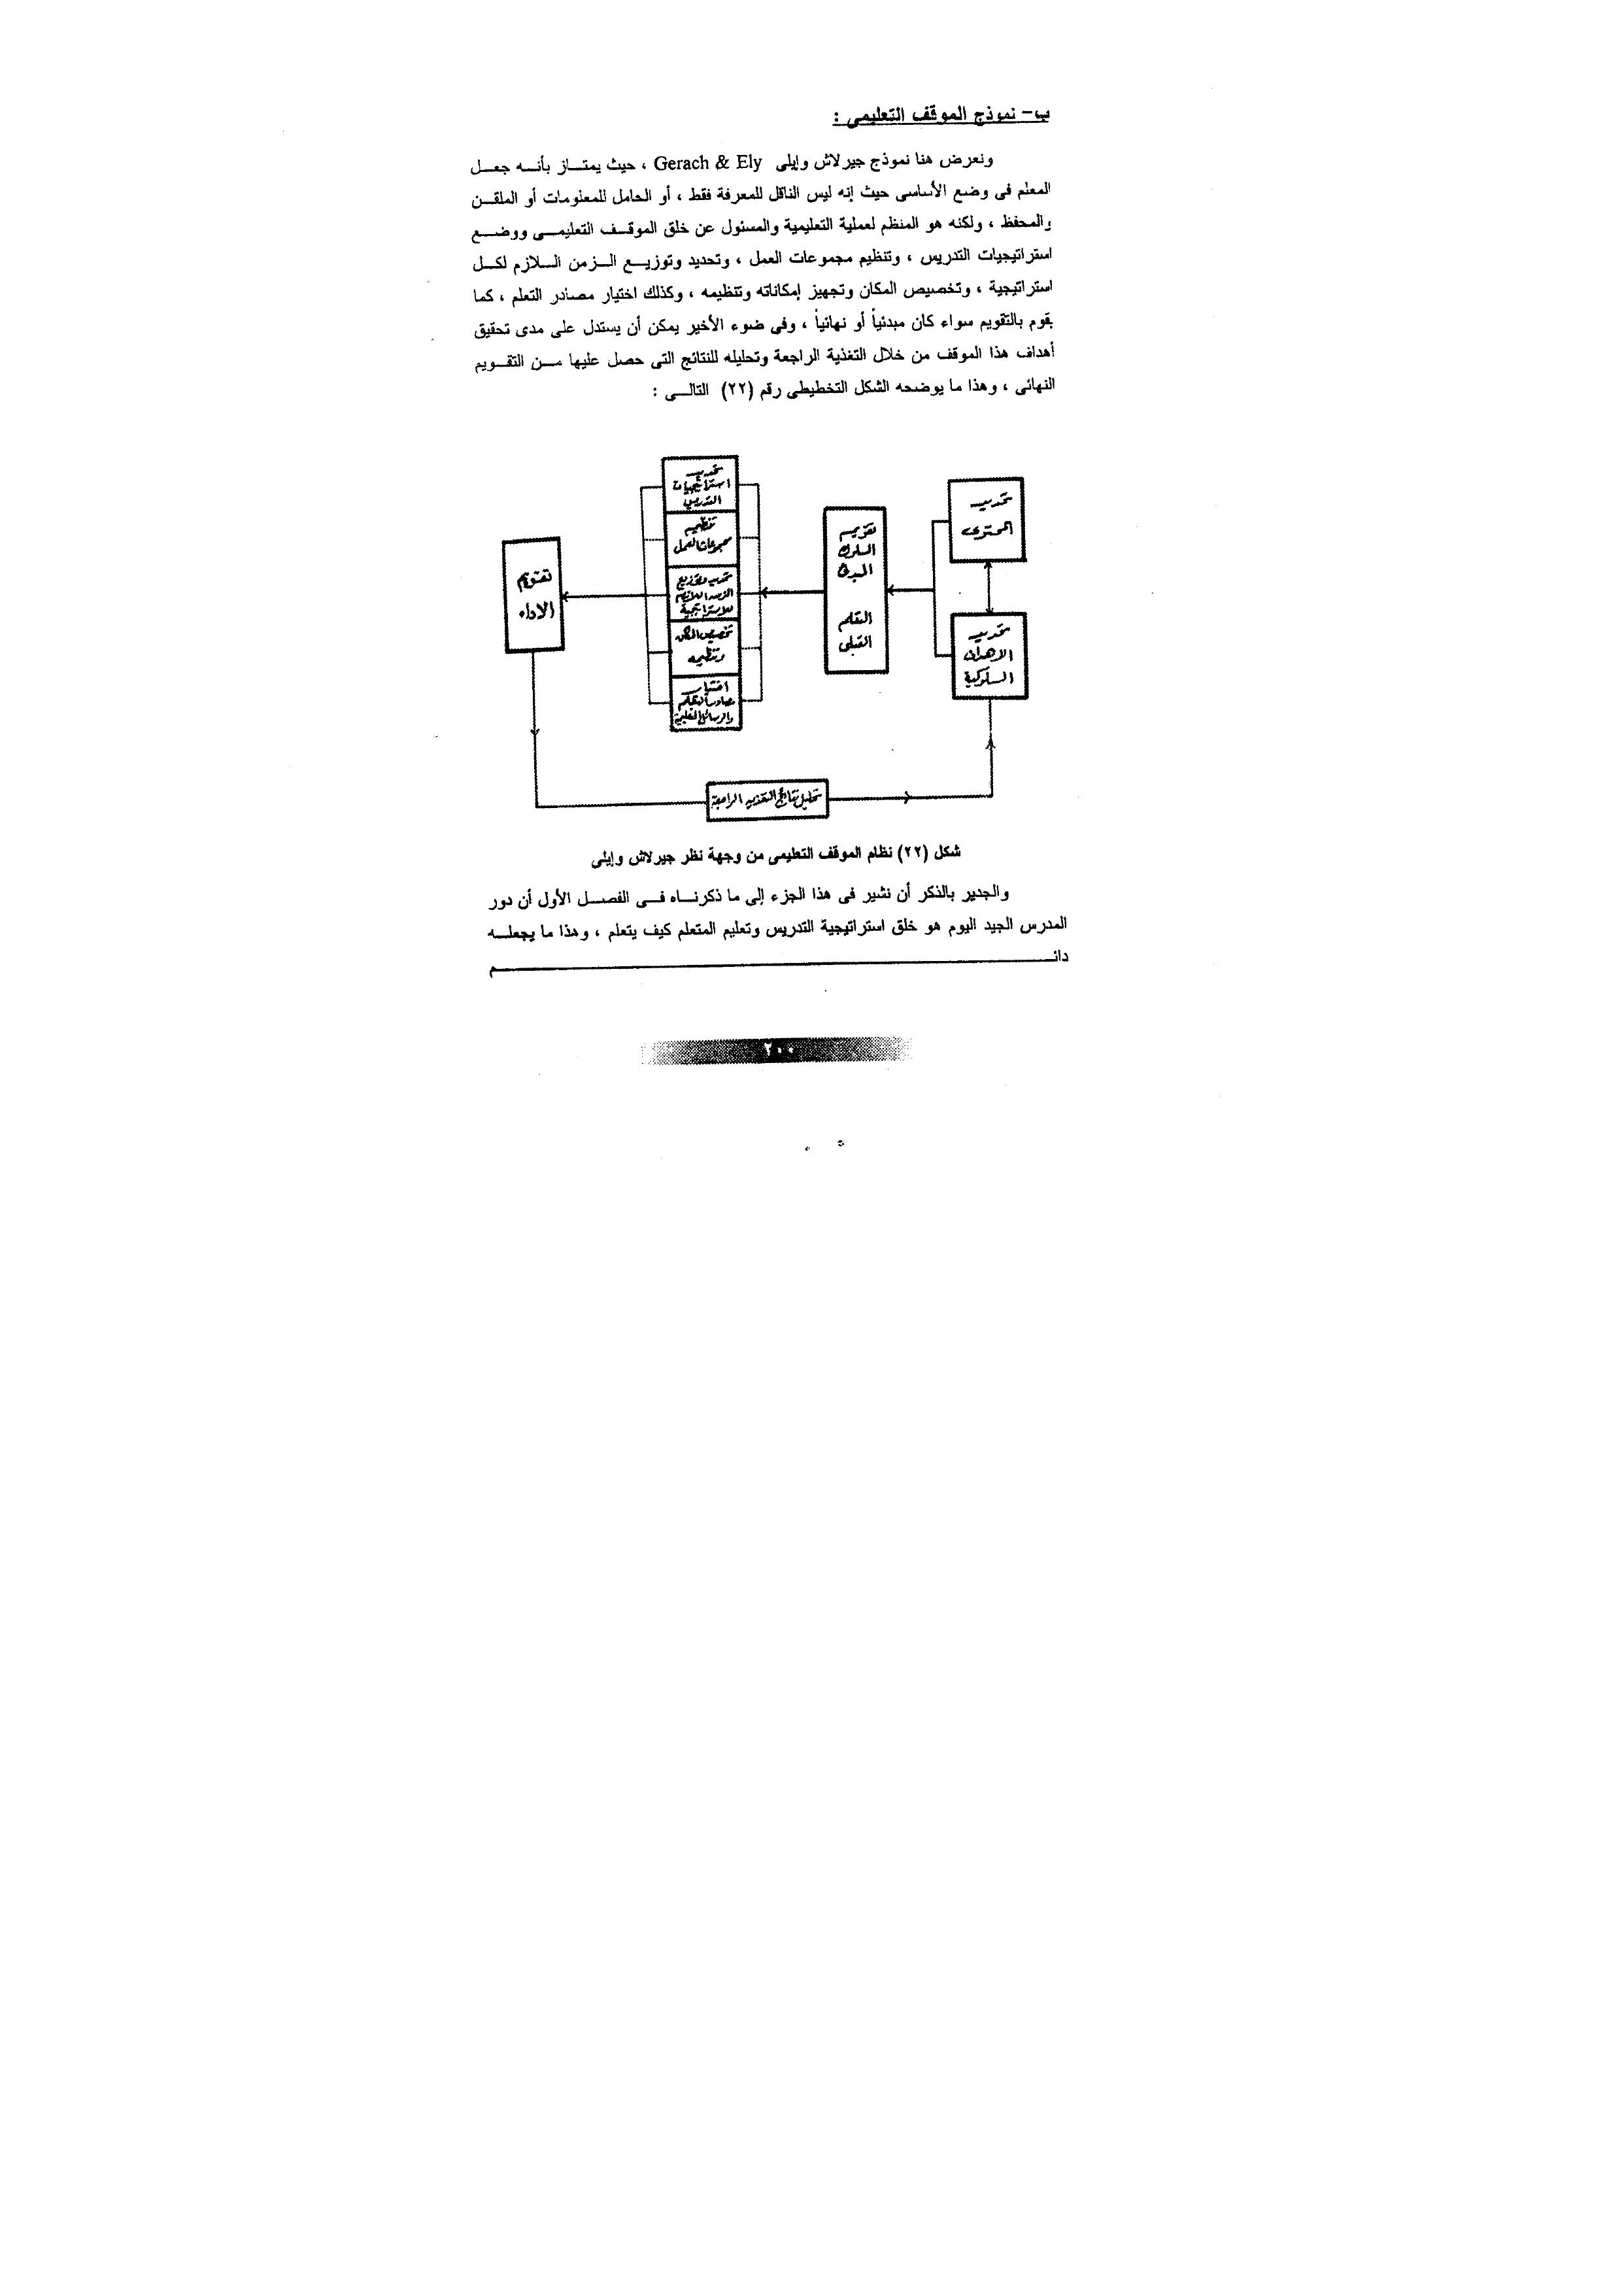 ب- نموذج الموقف التعليمى :
ونعرض هنا نموذج جيرلاش وإيلى Gerach & Ely ، حيث يمتـــاز بأنـــه جعـــل
المعلم فى وضع الأساسى حيث إنه ليس الناقل للمعرفة فقط ، أو الحامل للمعلومات أو الملقـــن
والمحفظ ، ولكنه هو المنظم لعملية التعليمية والمسئول عن خلق الموقـــف التعليمـــى ووضـــع
استراتيجيات التدريس ، وتنظيم مجموعات العمل ، وتحديد وتوزيـــع الـــزمن الـــلازم لكـــل
استراتيجية ، وتخصيص المكان وتجهيز إمكاناته وتنظيمه ، وكذلك اختيار مصادر التعلم ، كما
يقوم بالتقويم سواء كان مبدئياً أو نهائياً ، وفى ضوء الأخير يمكن أن يستدل على مدى تحقيق
أهداف هذا الموقف من خلال التغذية الراجعة وتحليله للنتائج التى حصل عليها مـــن التقـــويم
النهائى ، وهذا ما يوضحه الشكل التخطيطى رقم (٢٢) التالـــى :
تحديد
المحتوى
تحديد
الاهداف
السلوكية
تقويم
السلوك
المبدئى
التعلم
القبلى
تحديد
استراتيجيات
التدريس
تنظيم
مجموعات العمل
تحديد وتوزيع
الزمن اللازم
للاستراتيجية
تخصيص المكان
وتنظيمه
اختيار
مصادر التعلم
والوسائل التعليمية
تقويم
الاداء
تحليل نتائج التغذية الراجعة
شكل (٢٢) نظام الموقف التعليمى من وجهة نظر جيرلاش وإيلى
والجدير بالذكر أن نشير فى هذا الجزء إلى ما ذكرنـــاه فـــى الفصـــل الأول أن دور
المدرس الجيد اليوم هو خلق استراتيجية التدريس وتعليم المتعلم كيف يتعلم ، وهذا ما يجعلـــه
دائـــــــــــــم
٢٠٠